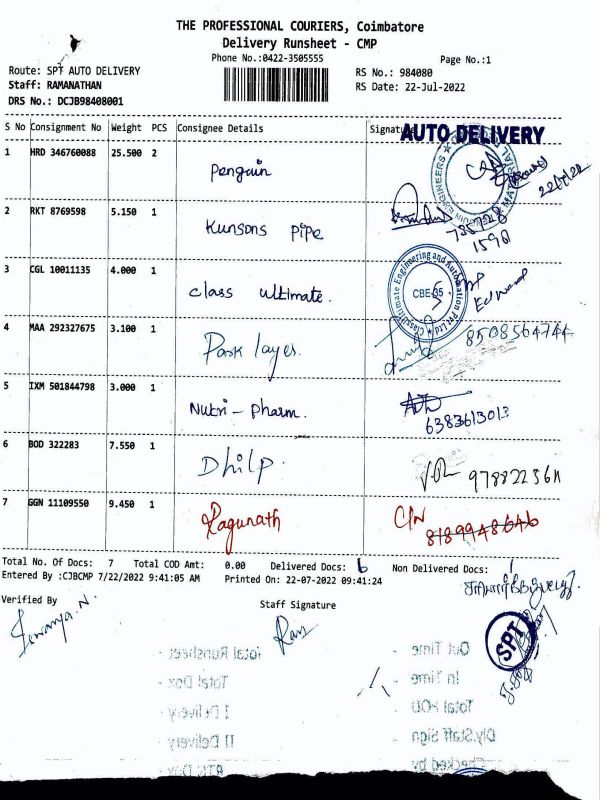 THE PROFESSIONAL COURIERS, Coimbatore
Delivery Runsheet - CMP
Phone No.:0422-3505555
Page No.:1
Route: SPT AUTO DELIVERY
Staff: RAMANATHAN
DRS No.: DCJB98408001
RS No.: 984080
RS Date: 22-Jul-2022
S No Consignment No Weight PCS Consignee Details Signature
AUTO DELIVERY
1 HRD 346760088 25.500 2 Penguin
22/7/22
2 RKT 8769598 5.150 1 Kunsons pipe
3 CGL 10011135 4.000 1 class ultimate.
Classultimate Engineering and Automation Pvt Ltd
CBE-35
4 MAA 292327675 3.100 1
8508564744
5 IXM 501844798 3.000 1 Nutri - pharm.
6383613013
6 BOD 322283 7.550 1 Dhilp.
7 GGN 11109550 9.450 1 Ragunath C/N
8189948646
Total No. Of Docs: 7 Total COD Amt: 0.00 Delivered Docs: 6 Non Delivered Docs: 1
Entered By :CJBCMP 7/22/2022 9:41:05 AM Printed On: 22-07-2022 09:41:24
Verified By
Staff Signature
SPT
Total Runsheet - Out Time -
Total Dox - In Time -
I Delivery - Total POD -
II Delivery - Dly.Staff Sign -
RTN Dox - Checked by